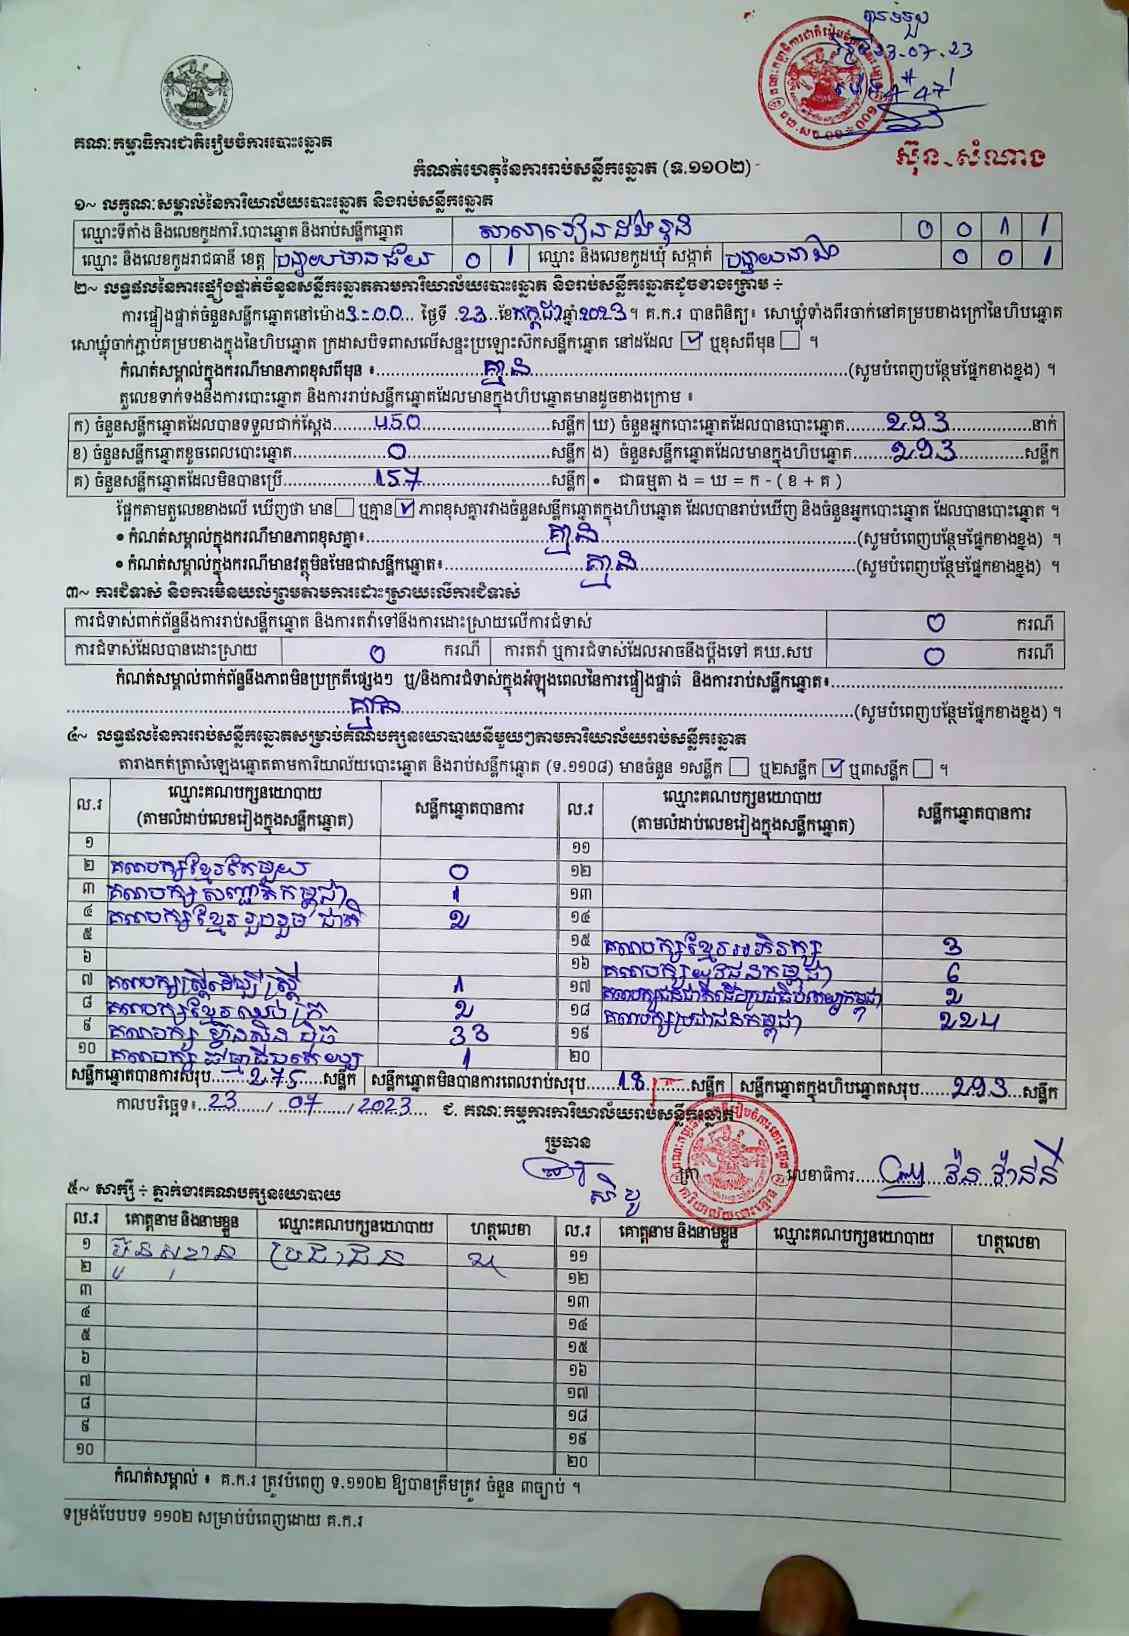 បានទទួល
ថ្ងៃ 23.07.23
គណៈកម្មាធិការជាតិរៀបចំការបោះឆ្នោត
ស៊ុន សំណាង
កំណត់ហេតុនៃការរាប់សន្លឹកឆ្នោត (ទ.១១០២)
១~ លក្ខណៈសម្គាល់នៃការិយាល័យបោះឆ្នោត និងរាប់សន្លឹកឆ្នោត
ឈ្មោះទីតាំង និងលេខកូដការិ.បោះឆ្នោត និងរាប់សន្លឹកឆ្នោត សាលារៀន 0 0 1 1
ឈ្មោះ និងលេខកូដរាជធានី ខេត្ត បន្ទាយមានជ័យ 0 1 ឈ្មោះ និងលេខកូដឃុំ សង្កាត់ 0 0 1
២~ លទ្ធផលនៃការផ្ទៀងផ្ទាត់ចំនួនសន្លឹកឆ្នោតតាមការិយាល័យបោះឆ្នោត និងរាប់សន្លឹកឆ្នោតដូចខាងក្រោម ÷
ការផ្ទៀងផ្ទាត់ចំនួនសន្លឹកឆ្នោតនៅម៉ោង 3:00 ថ្ងៃទី 23 ខែ កក្កដា ឆ្នាំ 2023 ។ គ.ក.រ បានពិនិត្យ៖ សោឃ្លុំទាំងពីរចាក់នៅគម្របខាងក្រៅនៃហិបឆ្នោត
សោឃ្លុំចាក់ភ្ជាប់គម្របខាងក្នុងនៃហិបឆ្នោត ក្រដាសបិទពាសលើសន្ទះប្រឡោះស៊កសន្លឹកឆ្នោត នៅដដែល ✓ ឬខុសពីមុន ។
កំណត់សម្គាល់ក្នុងករណីមានភាពខុសពីមុន ៖ គ្មាន (សូមបំពេញបន្ថែមផ្នែកខាងខ្នង) ។
តួលេខទាក់ទងនឹងការបោះឆ្នោត និងការរាប់សន្លឹកឆ្នោតដែលមានក្នុងហិបឆ្នោតមានដូចខាងក្រោម ៖
ក) ចំនួនសន្លឹកឆ្នោតដែលបានទទួលជាក់ស្តែង 450 សន្លឹក ឃ) ចំនួនអ្នកបោះឆ្នោតដែលបានបោះឆ្នោត 293 នាក់
ខ) ចំនួនសន្លឹកឆ្នោតខូចពេលបោះឆ្នោត 0 សន្លឹក ង) ចំនួនសន្លឹកឆ្នោតដែលមានក្នុងហិបឆ្នោត 293 សន្លឹក
គ) ចំនួនសន្លឹកឆ្នោតដែលមិនបានប្រើ 157 សន្លឹក • ជាធម្មតា ង = ឃ = ក - ( ខ + គ )
ផ្អែកតាមតួលេខខាងលើ ឃើញថា មាន ឬគ្មាន ✓ ភាពខុសគ្នារវាងចំនួនសន្លឹកឆ្នោតក្នុងហិបឆ្នោត ដែលបានរាប់ឃើញ និងចំនួនអ្នកបោះឆ្នោត ដែលបានបោះឆ្នោត ។
• កំណត់សម្គាល់ក្នុងករណីមានភាពខុសគ្នា៖ គ្មាន (សូមបំពេញបន្ថែមផ្នែកខាងខ្នង) ។
• កំណត់សម្គាល់ក្នុងករណីមានវត្ថុមិនមែនជាសន្លឹកឆ្នោត៖ គ្មាន (សូមបំពេញបន្ថែមផ្នែកខាងខ្នង) ។
៣~ ការជំទាស់ និងការមិនយល់ព្រមតាមការដោះស្រាយលើការជំទាស់
ការជំទាស់ពាក់ព័ន្ធនឹងការរាប់សន្លឹកឆ្នោត និងការតវ៉ាទៅនឹងការដោះស្រាយលើការជំទាស់ 0 ករណី
ការជំទាស់ដែលបានដោះស្រាយ 0 ករណី ការតវ៉ា ឬការជំទាស់ដែលអាចនឹងប្តឹងទៅ គឃ.សប 0 ករណី
កំណត់សម្គាល់ពាក់ព័ន្ធនឹងភាពមិនប្រក្រតីផ្សេងៗ ឬ/និងការជំទាស់ក្នុងអំឡុងពេលនៃការផ្ទៀងផ្ទាត់ និងការរាប់សន្លឹកឆ្នោត៖
គ្មាន (សូមបំពេញបន្ថែមផ្នែកខាងខ្នង) ។
៤~ លទ្ធផលនៃការរាប់សន្លឹកឆ្នោតសម្រាប់គណបក្សនយោបាយនីមួយៗតាមការិយាល័យរាប់សន្លឹកឆ្នោត
តារាងកត់ត្រាសំឡេងឆ្នោតតាមការិយាល័យបោះឆ្នោត និងរាប់សន្លឹកឆ្នោត (ទ.១១០៨) មានចំនួន ១សន្លឹក ឬ២សន្លឹក ✓ ឬ៣សន្លឹក ។
ល.រ ឈ្មោះគណបក្សនយោបាយ (តាមលំដាប់លេខរៀងក្នុងសន្លឹកឆ្នោត) សន្លឹកឆ្នោតបានការ ល.រ ឈ្មោះគណបក្សនយោបាយ (តាមលំដាប់លេខរៀងក្នុងសន្លឹកឆ្នោត) សន្លឹកឆ្នោតបានការ
១ ១១
២ គណបក្សខ្មែរតែមួយ 0 ១២
៣ គណបក្សសញ្ជាតិកម្ពុជា 1 ១៣
៤ គណបក្សខ្មែររួបរួមជាតិ 2 ១៤
៥ ១៥ គណបក្សខ្មែរអភិរក្ស 3
៦ ១៦ គណបក្សយុវជនកម្ពុជា 6
៧ គណបក្សស្ត្រីដើម្បីស្ត្រី 1 ១៧ គណបក្សជនជាតិដើមប្រជាធិបតេយ្យកម្ពុជា 2
៨ គណបក្សខ្មែរឈប់ក្រ 2 ១៨ គណបក្សប្រជាជនកម្ពុជា 224
៩ គណបក្សហ្វ៊ុនស៊ិនប៉ិច 33 ១៩
១០ គណបក្សធម្មាធិបតេយ្យ 1 ២០
សន្លឹកឆ្នោតបានការសរុប 275 សន្លឹក សន្លឹកឆ្នោតមិនបានការពេលរាប់សរុប 18 សន្លឹក សន្លឹកឆ្នោតក្នុងហិបឆ្នោតសរុប 293 សន្លឹក
កាលបរិច្ឆេទ៖ 23 / 07 / 2023 ជ. គណៈកម្មការការិយាល័យរាប់សន្លឹកឆ្នោត
ប្រធាន
ត្រា លេខាធិការ វ៉ន វ៉ាន់នី
៥~ សាក្សី ÷ ភ្នាក់ងារគណបក្សនយោបាយ
ល.រ គោត្តនាម និងនាមខ្លួន ឈ្មោះគណបក្សនយោបាយ ហត្ថលេខា ល.រ គោត្តនាម និងនាមខ្លួន ឈ្មោះគណបក្សនយោបាយ ហត្ថលេខា
១ ប្រជាជន ១១
២ ១២
៣ ១៣
៤ ១៤
៥ ១៥
៦ ១៦
៧ ១៧
៨ ១៨
៩ ១៩
១០ ២០
កំណត់សម្គាល់ ៖ គ.ក.រ ត្រូវបំពេញ ទ.១១០២ ឱ្យបានត្រឹមត្រូវ ចំនួន ៣ច្បាប់ ។
ទម្រង់បែបបទ ១១០២ សម្រាប់បំពេញដោយ គ.ក.រ